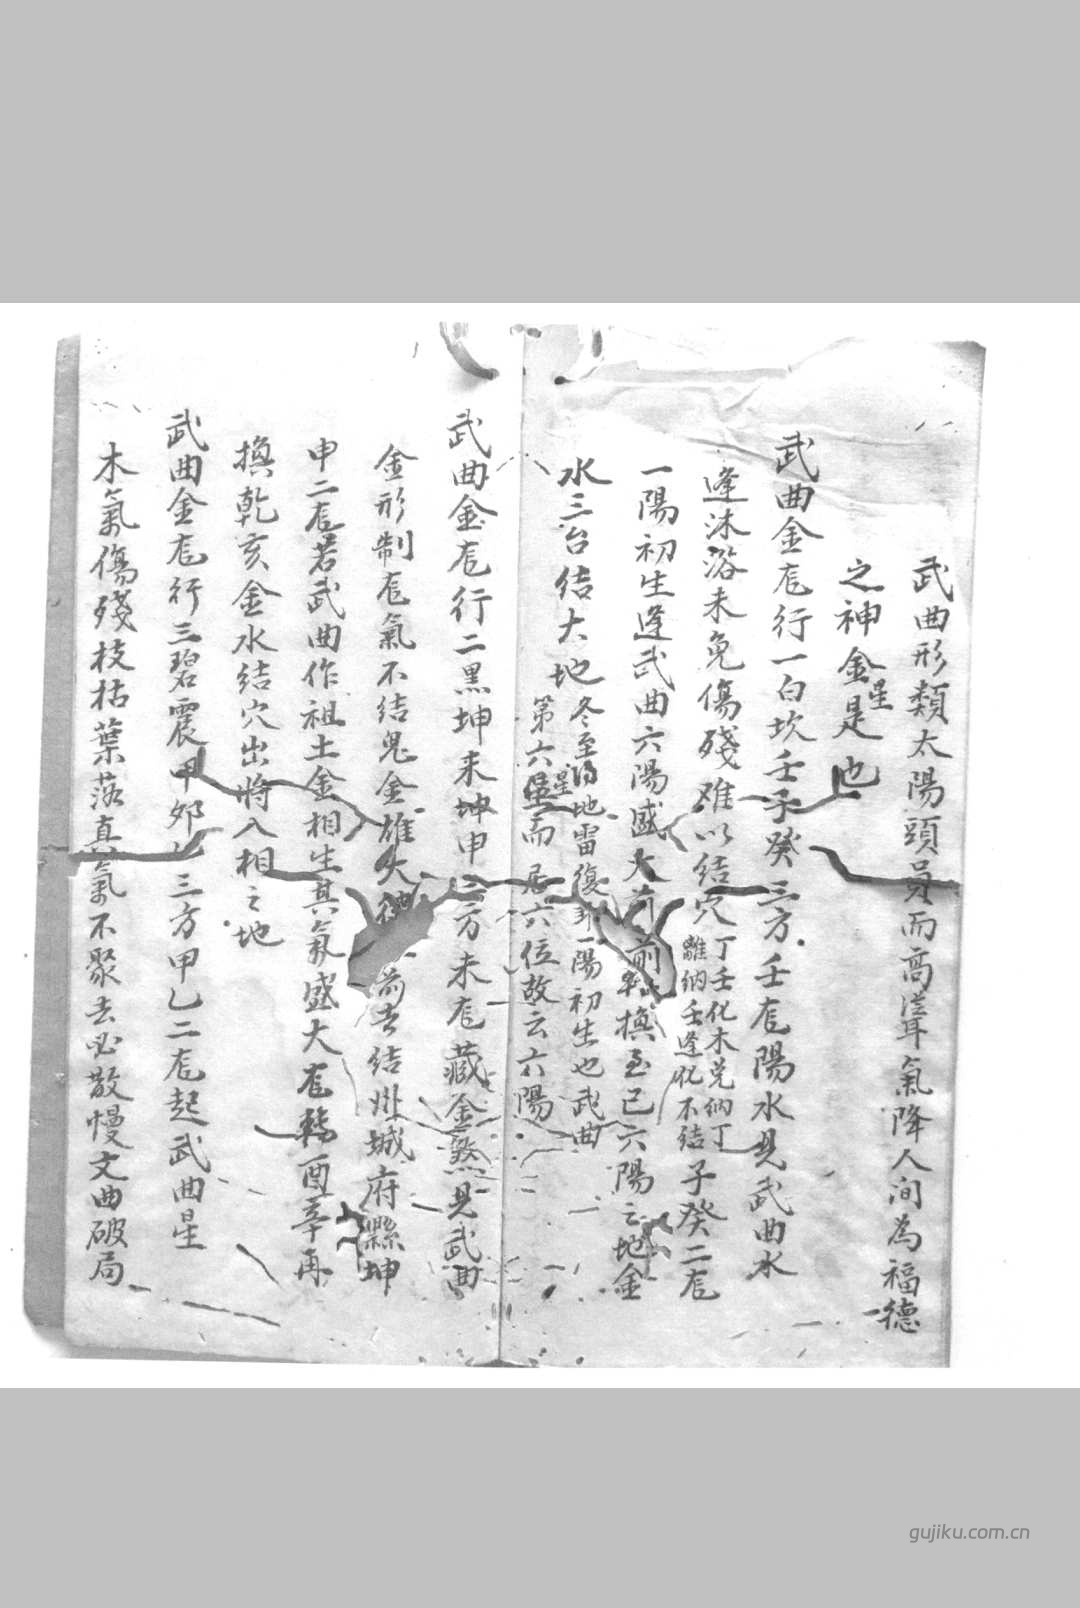 武曲形類太陽頭員而高聳氣降人间為福德
之神金星是也
武曲金龙行一白坎壬子癸三方壬龙陽水見武曲水
逢沐浴未免傷殘难以结穴丁壬化木兑纳丁離纳壬逢化不结子癸二龙
一陽初生逢武曲六陽盛大前轉換至巳六陽云地金
水三台结大地冬至得地雷復卦一陽初生也武曲
第六星而居六位故云六陽
武曲金龙行二黑坤未坤申三方未龙藏金煞見武曲
金形制龙氣不结鬼金雄火前去结州城府縣坤
申二龙若武曲作祖土金相生其氣盛大龙轉酉辛再
換乾亥金水结穴出將入相之地
武曲金龙行三碧震甲卯乙三方甲乙二龙起武曲星
木氣傷殘枝枯葉落真氣不聚去必散慢文曲破局
gujiku.com.cn